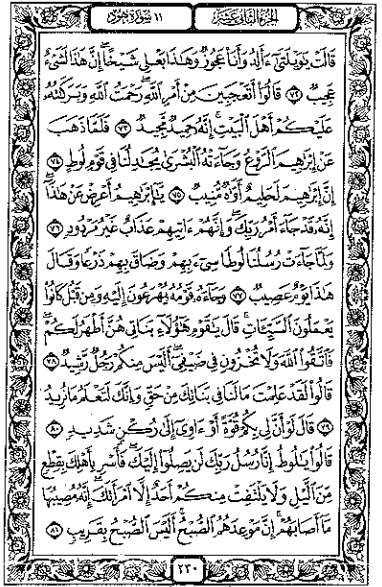 الجزء الثاني عشر
١١ سورة هود
قَالَتْ يَٰوَيْلَتَىٰٓ ءَأَلِدُ وَأَنَا۠ عَجُوزٌ وَهَٰذَا بَعْلِى شَيْخًا ۖ إِنَّ هَٰذَا لَشَىْءٌ
عَجِيبٌ ٧٢ قَالُوٓا۟ أَتَعْجَبِينَ مِنْ أَمْرِ ٱللَّهِ ۖ رَحْمَتُ ٱللَّهِ وَبَرَكَٰتُهُۥ
عَلَيْكُمْ أَهْلَ ٱلْبَيْتِ ۚ إِنَّهُۥ حَمِيدٌ مَّجِيدٌ ٧٣ فَلَمَّا ذَهَبَ
عَنْ إِبْرَٰهِيمَ ٱلرَّوْعُ وَجَآءَتْهُ ٱلْبُشْرَىٰ يُجَٰدِلُنَا فِى قَوْمِ لُوطٍ ٧٤
إِنَّ إِبْرَٰهِيمَ لَحَلِيمٌ أَوَّٰهٌ مُّنِيبٌ ٧٥ يَٰٓإِبْرَٰهِيمُ أَعْرِضْ عَنْ هَٰذَآ ۖ
إِنَّهُۥ قَدْ جَآءَ أَمْرُ رَبِّكَ ۖ وَإِنَّهُمْ ءَاتِيهِمْ عَذَابٌ غَيْرُ مَرْدُودٍ ٧٦
وَلَمَّا جَآءَتْ رُسُلُنَا لُوطًا سِىٓءَ بِهِمْ وَضَاقَ بِهِمْ ذَرْعًا وَقَالَ
هَٰذَا يَوْمٌ عَصِيبٌ ٧٧ وَجَآءَهُۥ قَوْمُهُۥ يُهْرَعُونَ إِلَيْهِ وَمِن قَبْلُ كَانُوا۟
يَعْمَلُونَ ٱلسَّيِّـَٔاتِ ۚ قَالَ يَٰقَوْمِ هَٰٓؤُلَآءِ بَنَاتِى هُنَّ أَطْهَرُ لَكُمْ ۖ
فَٱتَّقُوا۟ ٱللَّهَ وَلَا تُخْزُونِ فِى ضَيْفِىٓ ۖ أَلَيْسَ مِنكُمْ رَجُلٌ رَّشِيدٌ ٧٨
قَالُوا۟ لَقَدْ عَلِمْتَ مَا لَنَا فِى بَنَاتِكَ مِنْ حَقٍّ وَإِنَّكَ لَتَعْلَمُ مَا نُرِيدُ
٧٩ قَالَ لَوْ أَنَّ لِى بِكُمْ قُوَّةً أَوْ ءَاوِىٓ إِلَىٰ رُكْنٍ شَدِيدٍ ٨٠
قَالُوا۟ يَٰلُوطُ إِنَّا رُسُلُ رَبِّكَ لَن يَصِلُوٓا۟ إِلَيْكَ ۖ فَأَسْرِ بِأَهْلِكَ بِقِطْعٍ
مِّنَ ٱلَّيْلِ وَلَا يَلْتَفِتْ مِنكُمْ أَحَدٌ إِلَّا ٱمْرَأَتَكَ ۖ إِنَّهُۥ مُصِيبُهَا
مَآ أَصَابَهُمْ ۚ إِنَّ مَوْعِدَهُمُ ٱلصُّبْحُ ۚ أَلَيْسَ ٱلصُّبْحُ بِقَرِيبٍ ٨١
٢٣٠